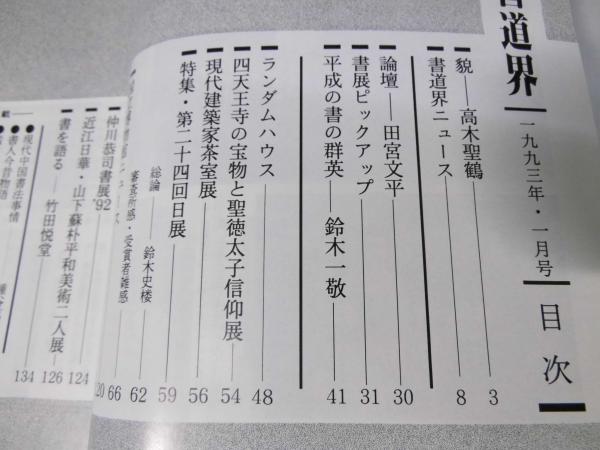 書道界 一九九三年・一月号 目次
貌──高木聖鶴 3
書道界ニュース 8
論壇──田宮文平 30
書展ピックアップ 31
平成の書の群英──鈴木一敬 41
ランダムハウス 48
四天王寺の宝物と聖徳太子信仰展 54
現代建築家茶室展 56
特集・第二十四回日展 59
総論──鈴木史楼 62
審査所感・受賞者雑感 66
20
仲川恭司書展'92
近江日華・山下蘇朴平和美術二人展 124
書を語る──竹田悦堂 126
●現代中国書法事情 134
●書人今昔物語